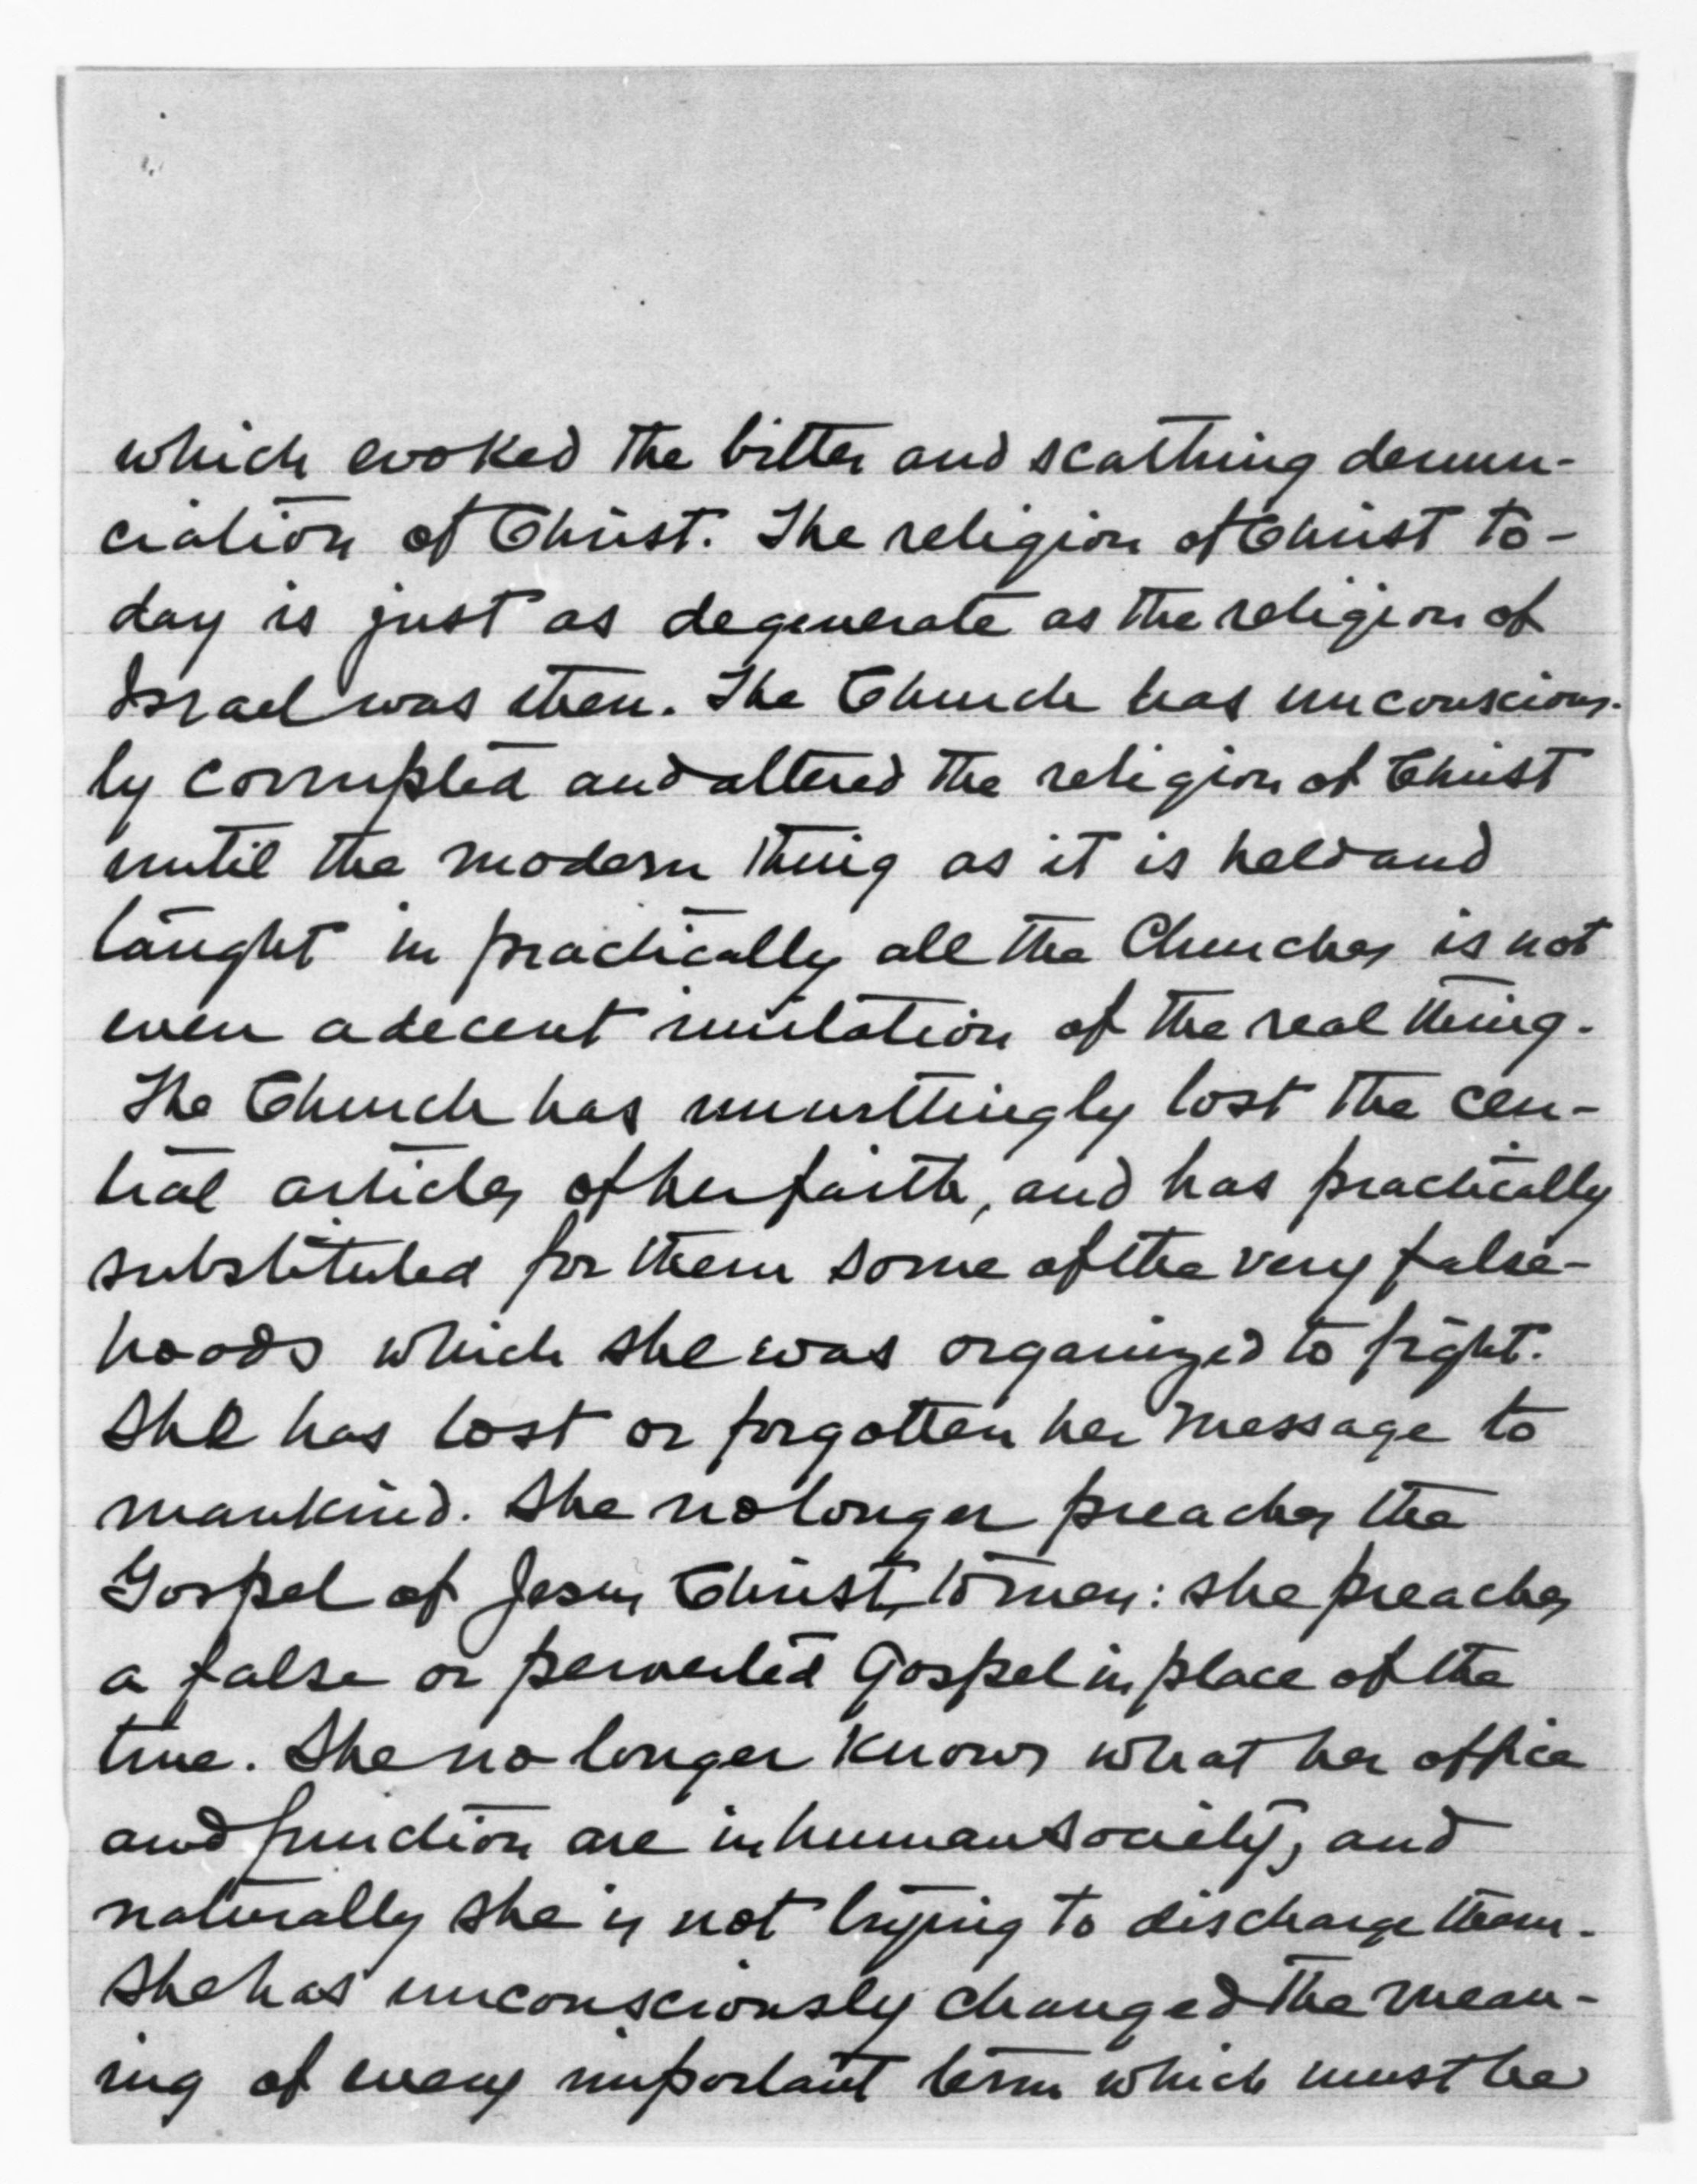 which evoked the bitter and scathing denun-
ciation of Christ. The religion of Christ to-
day is just as degenerate as the religion of
Israel was then. The Church has unconscious-
ly corrupted and altered the religion of Christ
until the modern thing as it is held and
taught in practically all the Churches is not
even a decent imitation of the real thing.
The Church has unwittingly lost the cen-
tral articles of her faith, and has practically
substituted for them some of the very false-
hoods which she was organized to fight.
She has lost or forgotten her message to
mankind. She no longer preaches the
Gospel of Jesus Christ to men: she preaches
a false or perverted Gospel in place of the
true. She no longer knows what her office
and function are in human society, and
naturally she is not trying to discharge them.
She has unconsciously changed the mean-
ing of every important term which must be